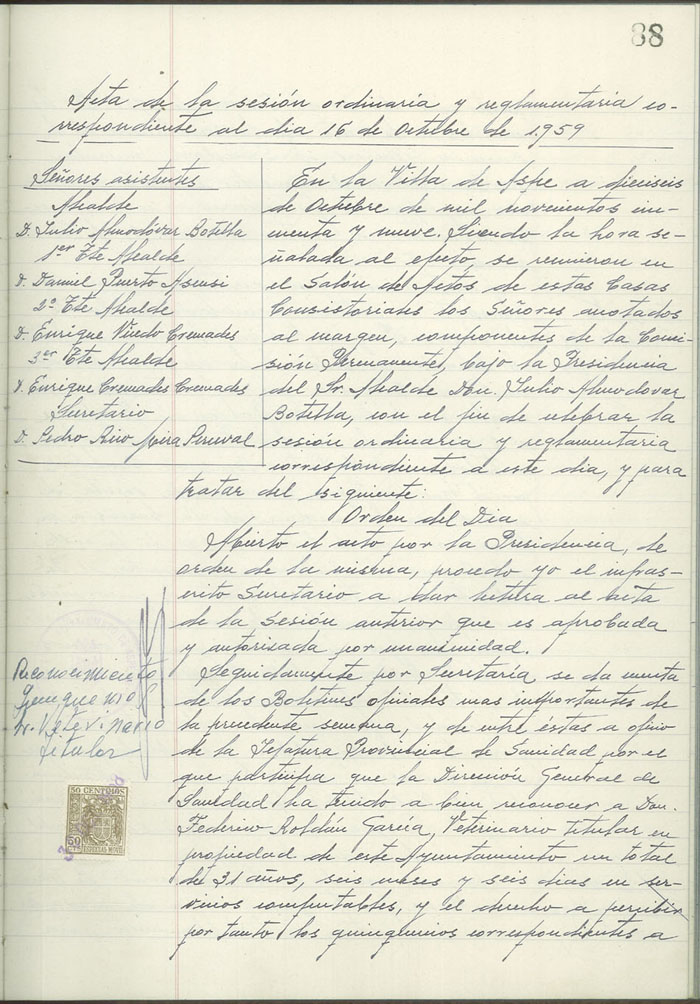 88
Acta de la sesión ordinaria y reglamentaria co-
rrespondiente al dia 16 de Octubre de 1.959
Señores asistentes
Alcalde
D. Julio Almodóvar Botella
1er Tte Alcalde
D. Daniel Puerto Asensi
2º Tte Alcalde
D. Enrique Vicedo Cremades
3er Tte Alcalde
D. Enrique Cremades Cremades
Secretario
D. Pedro Mira
En la Villa de Aspe a dieciseis
de Octubre de mil novecientos cin-
cuenta y nueve. Siendo la hora se-
ñalada al efecto, se reunieron en
el Salón de Actos de estas Casas
Consistoriales los Señores anotados
al margen, componentes de la Comi-
sión Permanente, bajo la Presidencia
del Sr. Alcalde Don. Julio Almodovar
Botella, con el fin de celebrar la
sesión ordinaria y reglamentaria
correspondiente a este dia, y para
tratar del siguiente:
Orden del Dia
Abierto el acto por la Presidencia, de
orden de la misma, procedo yo el infras-
crito Secretario a dar lectura al acta
de la sesión anterior que es aprobada
y autorizada por unanimidad.
Reconocimiento
quinquenio
Sr. Veterinario
titular
Seguidamente por Secretaría se da cuenta
de los Boletines oficiales mas importantes de
la precedente semana, y de entre éstas a oficio
de la Jefatura Provincial de Sanidad por el
que participa que la Dirección General de
Sanidad ha tenido a bien reconocer a Don.
Federico Roldán García, Veterinario titular en
propiedad de este Ayuntamiento un total
de 31 años, seis meses y seis dias en ser-
vicios computables, y el derecho a percibir
por tanto los quinquenios correspondientes a
50 CENTIMOS
50
ESPECIAL MOVIL